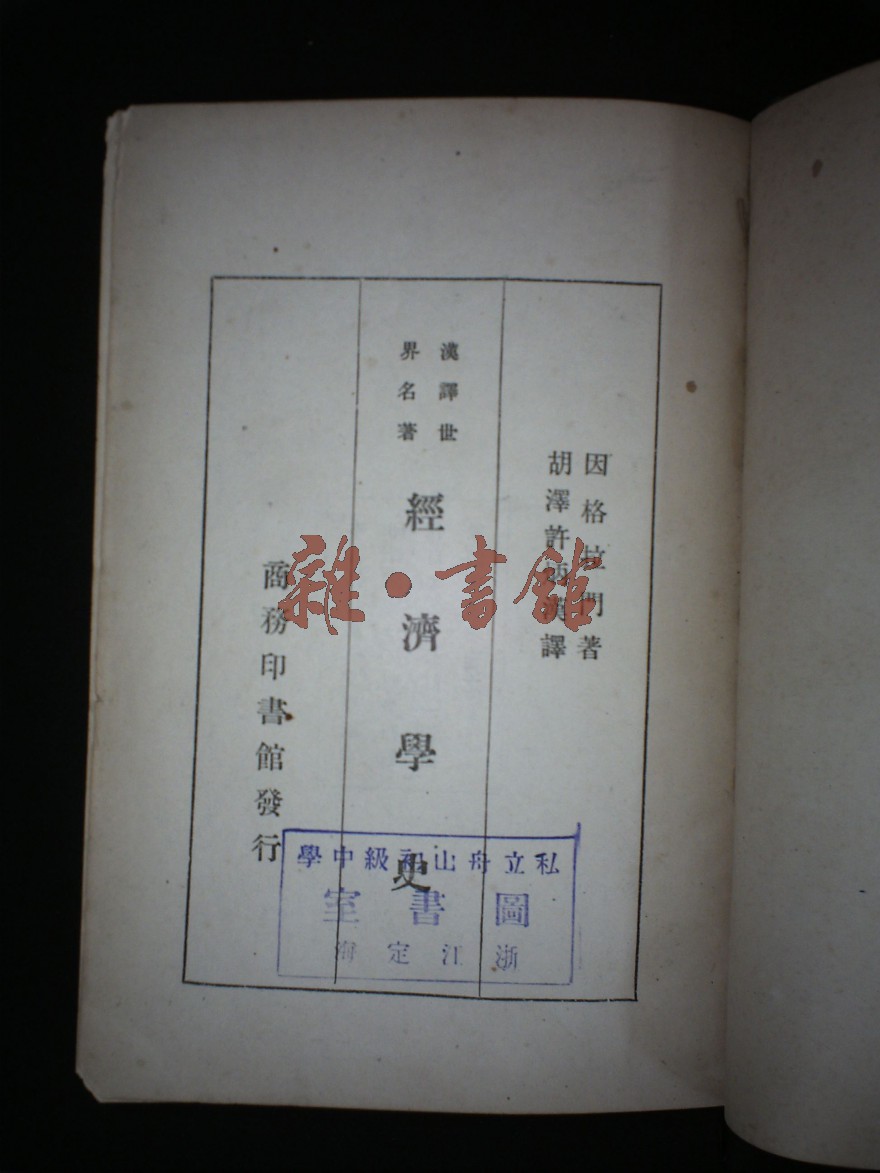 因格拉門著
胡澤許炳漢譯
漢譯世
界名著
經濟學史
商務印書館發行
私立舟山初級中學
圖書室
浙江定海
雜·書館